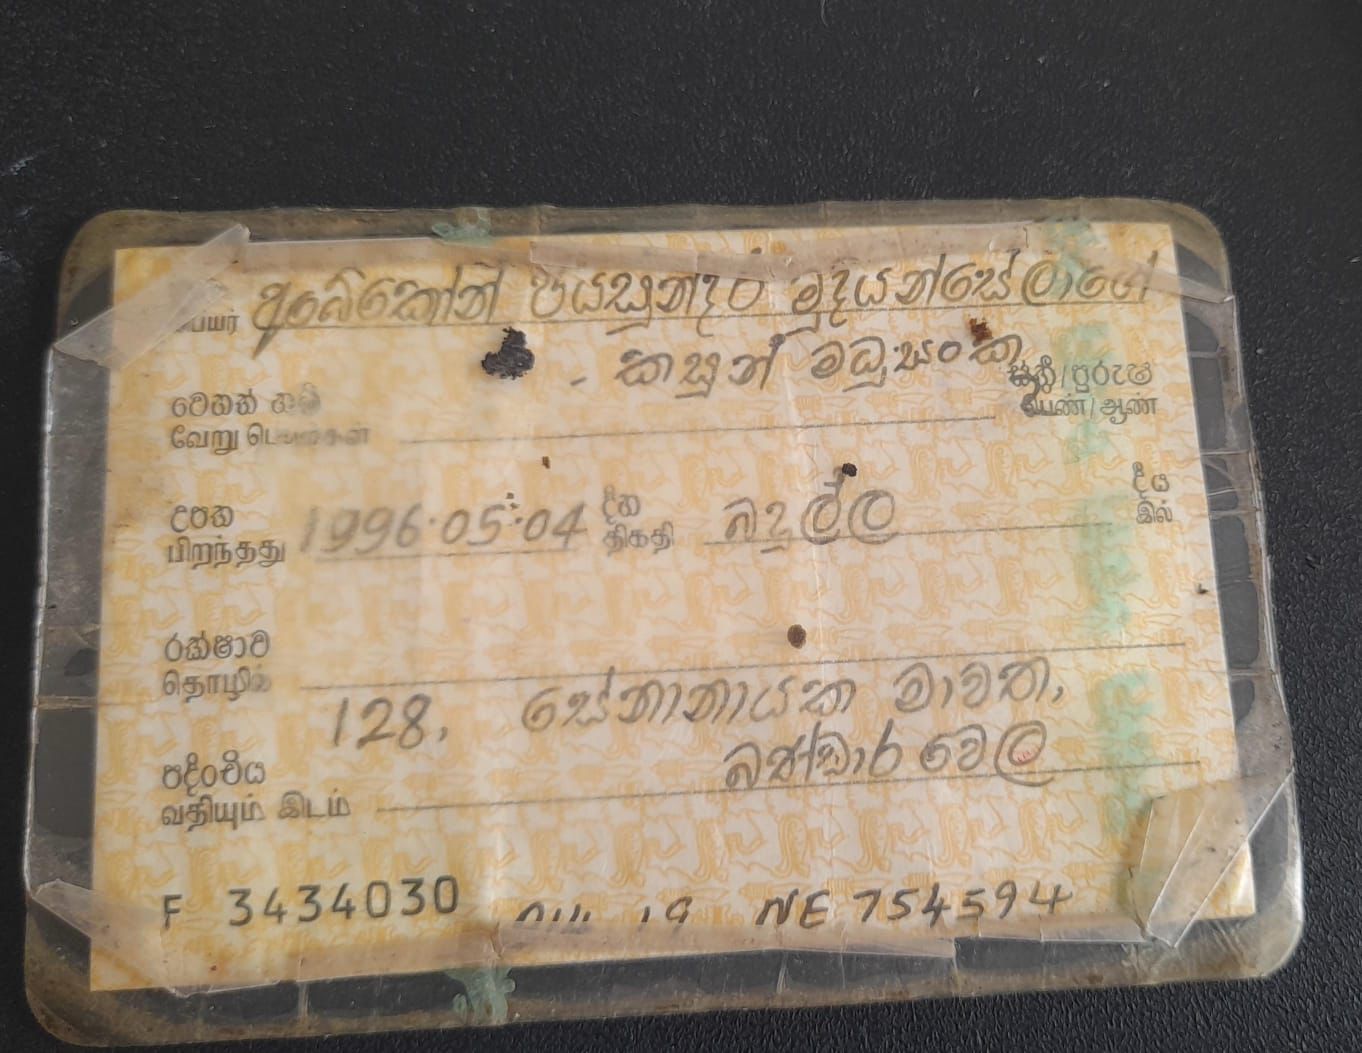 பெயர் අබේකෝන් ජයසුන්දර මුදියන්සේලාගේ
- කසුන් මධුසංක
වෙනත් නම් ස්ත්‍රී/පුරුෂ
வேறு பெயர்கள் பெண்/ஆண்
උපත 1996.05.04 දින බදුල්ල දීය
பிறந்தது திகதி இல்
රක්ෂාව
தொழில்
128, සේනානායක මාවත,
පදිංචිය බණ්ඩාරවෙල
வதியும் இடம்
F 3434030 NE 754594